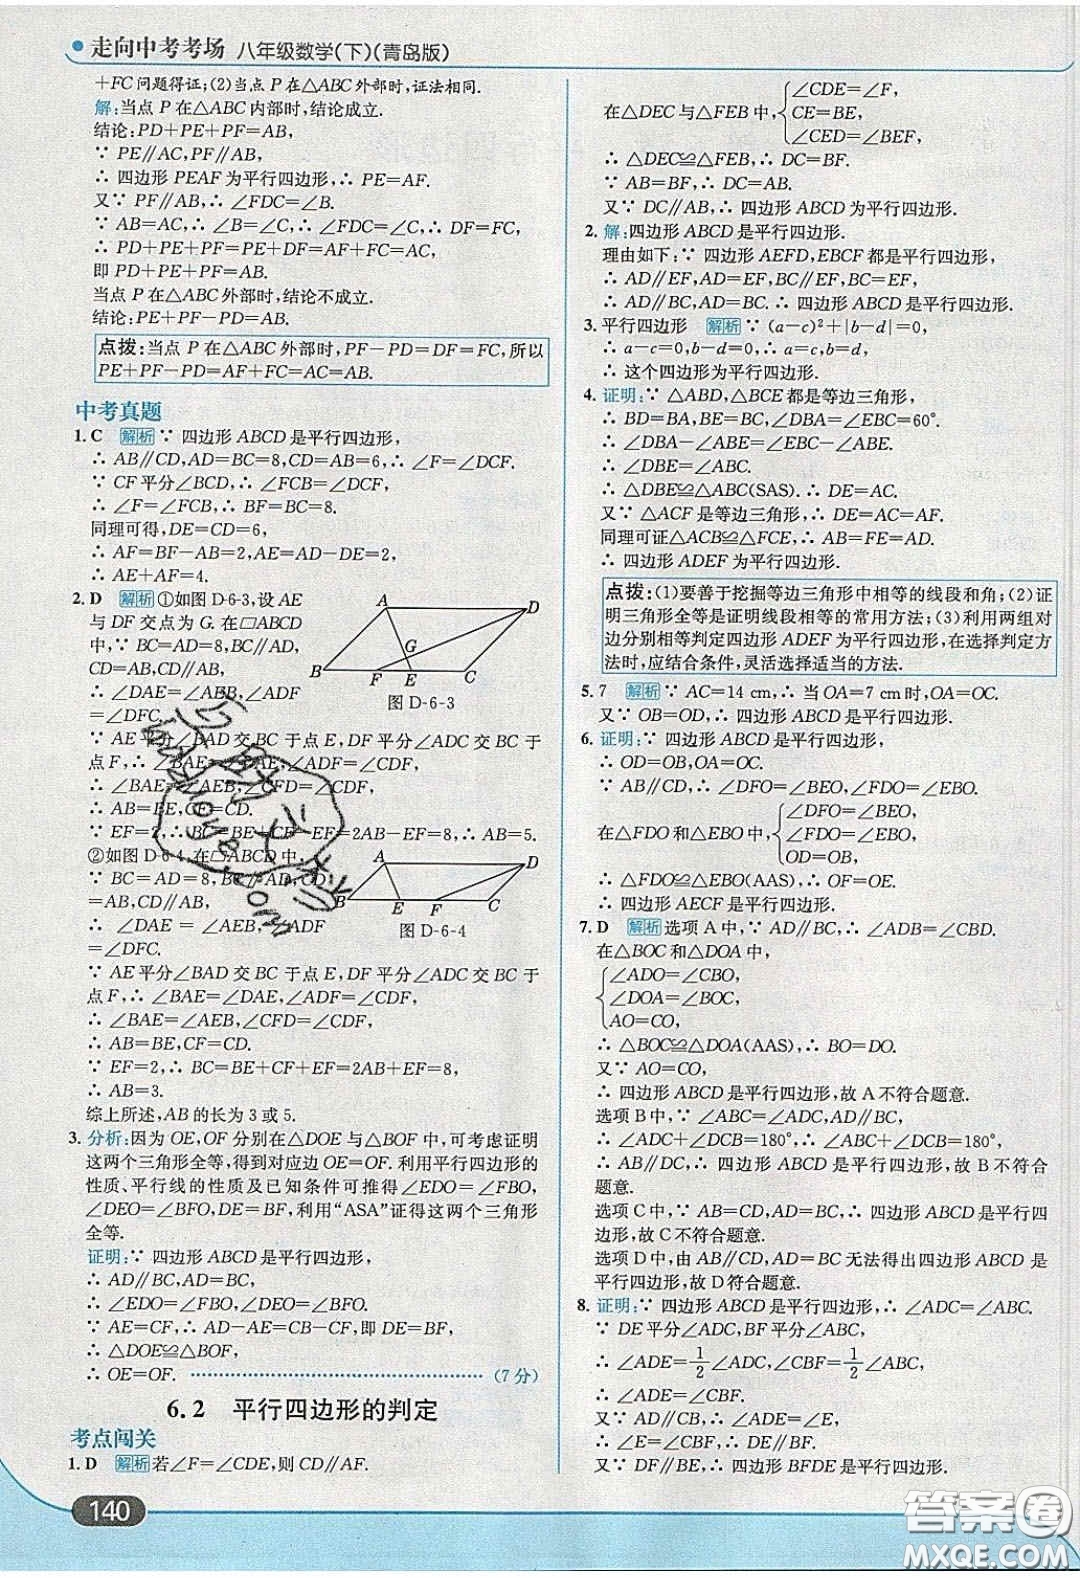 走向中考考场 八年级数学(下)(青岛版)
+FC问题得证;(2)当点P在△ABC外部时,证法相同.
解:当点P在△ABC内部时,结论成立.
结论:PD+PE+PF=AB,
∵ PE∥AC,PF∥AB,
∴ 四边形PEAF为平行四边形,∴ PE=AF.
又∵ PF∥AB,∴ ∠FDC=∠B.
∵ AB=AC,∴ ∠B=∠C,∴ ∠FDC=∠C,∴ DF=FC,
∴ PD+PE+PF=PE+DF=AF+FC=AC,
即PD+PE+PF=AB.
当点P在△ABC外部时,结论不成立.
结论:PE+PF-PD=AB.
点拨:当点P在△ABC外部时,PF-PD=DF=FC,所以
PE+PF-PD=AF+FC=AC=AB.
中考真题
1. C 解析 ∵ 四边形ABCD是平行四边形,
∴ AB∥CD,AD=BC=8,CD=AB=6,∴ ∠F=∠DCF.
∵ CF平分∠BCD,∴ ∠FCB=∠DCF,
∴ ∠F=∠FCB,∴ BF=BC=8.
同理可得,DE=CD=6,
∴ AF=BF-AB=2,AE=AD-DE=2,
∴ AE+AF=4.
2. D 解析 ①如图D-6-3,设AE
与DF交点为G.在□ABCD
中,∵ BC=AD=8,BC∥AD,
CD=AB,CD∥AB,
∴ ∠DAE=∠AEB,∠ADF
=∠DFC.
A D G B F E C
图D-6-3
∵ AE平分∠BAD交BC于点E,DF平分∠ADC交BC于
点F,∴ ∠BAE=∠DAE,∠ADF=∠CDF,
∴ ∠BAE=∠AEB,∠CFD=∠CDF,
∴ AB=BE,CF=CD.
∵ EF=2,∴ BC=BE+CF-EF=2AB-EF=8,∴ AB=5.
②如图D-6-4,在□ABCD中,
∵ BC=AD=8,BC∥AD,CD
=AB,CD∥AB,
∴ ∠DAE=∠AEB,∠ADF
=∠DFC.
A D B E F C
图D-6-4
∵ AE平分∠BAD交BC于点E,DF平分∠ADC交BC于
点F,∴ ∠BAE=∠DAE,∠ADF=∠CDF,
∴ ∠BAE=∠AEB,∠CFD=∠CDF,
∴ AB=BE,CF=CD.
∵ EF=2,∴ BC=BE+CF+EF=2AB+EF=8,
∴ AB=3.
综上所述,AB的长为3或5.
3. 分析:因为OE,OF分别在△DOE与△BOF中,可考虑证明
这两个三角形全等,得到对应边OE=OF.利用平行四边形的
性质、平行线的性质及已知条件可推得∠EDO=∠FBO,
∠DEO=∠BFO,DE=BF,利用“ASA”证得这两个三角形
全等.
证明:∵ 四边形ABCD是平行四边形,
∴ AD∥BC,AD=BC,
∴ ∠EDO=∠FBO,∠DEO=∠BFO.
∵ AE=CF,∴ AD-AE=CB-CF,即DE=BF,
∴ △DOE≌△BOF,
∴ OE=OF. (7分)
6.2 平行四边形的判定
考点闯关
1. D 解析 若∠F=∠CDE,则CD∥AF.
在△DEC与△FEB中,{∠CDE=∠F,
CE=BE,
∠CED=∠BEF,
∴ △DEC≌△FEB,∴ DC=BF.
∵ AB=BF,∴ DC=AB.
又∵ DC∥AB,∴ 四边形ABCD为平行四边形.
2. 解:四边形ABCD是平行四边形.
理由如下:∵ 四边形AEFD,EBCF都是平行四边形,
∴ AD∥EF,AD=EF,BC∥EF,BC=EF,
∴ AD∥BC,AD=BC.∴ 四边形ABCD是平行四边形.
3. 平行四边形 解析 ∵ (a-c)²+|b-d|=0,
∴ a-c=0,b-d=0,∴ a=c,b=d,
∴ 这个四边形为平行四边形.
4. 证明:∵ △ABD,△BCE都是等边三角形,
∴ BD=BA,BE=BC,∠DBA=∠EBC=60°.
∴ ∠DBA-∠ABE=∠EBC-∠ABE.
∴ ∠DBE=∠ABC.
∴ △DBE≌△ABC(SAS).∴ DE=AC.
又∵ △ACF是等边三角形,∴ DE=AC=AF.
同理可证△ACB≌△FCE,∴ AB=FE=AD.
∴ 四边形ADEF为平行四边形.
点拨:(1)要善于挖掘等边三角形中相等的线段和角;(2)证
明三角形全等是证明线段相等的常用方法;(3)利用两组对
边分别相等判定四边形ADEF为平行四边形,在选择判定方
法时,应结合条件,灵活选择适当的方法.
5. 7 解析 ∵ AC=14 cm,∴ 当OA=7 cm时,OA=OC.
又∵ OB=OD,∴ 四边形ABCD是平行四边形.
6. 证明:∵ 四边形ABCD是平行四边形,
∴ OD=OB,OA=OC.
∵ AB∥CD,∴ ∠DFO=∠BEO,∠FDO=∠EBO.
在△FDO和△EBO中,{∠DFO=∠BEO,
∠FDO=∠EBO,
OD=OB,
∴ △FDO≌△EBO(AAS),∴ OF=OE.
∴ 四边形AECF是平行四边形.
7. D 解析 选项A中,∵ AD∥BC,∴ ∠ADB=∠CBD.
在△BOC和△DOA中,
{∠ADO=∠CBO,
∠DOA=∠BOC,
AO=CO,
∴ △BOC≌△DOA(AAS),∴ BO=DO.
又∵ AO=CO,
∴ 四边形ABCD是平行四边形,故A不符合题意.
选项B中,∵ ∠ABC=∠ADC,AD∥BC,
∴ ∠ADC+∠DCB=180°,∴ ∠ABC+∠BCD=180°,
∴ AB∥CD,∴ 四边形ABCD是平行四边形,故B不符合
题意.
选项C中,∵ AB=CD,AD=BC,∴ 四边形ABCD是平行四
边形,故C不符合题意.
选项D中,由AB∥CD,AD=BC无法得出四边形ABCD是
平行四边形,故D符合题意.
8. 证明:∵ 四边形ABCD是平行四边形,∴ ∠ADC=∠ABC.
∵ DE平分∠ADC,BF平分∠ABC,
∴ ∠ADE=1/2∠ADC,∠FBC=1/2∠ABC,
又∵ AD=AE,∴ ∠ADE=∠E,
∴ ∠E=∠FBC,∴ DE∥BF.
又∵ DF∥BE,∴ 四边形BFDE是平行四边形.
140
答案圈
MXQE.COM